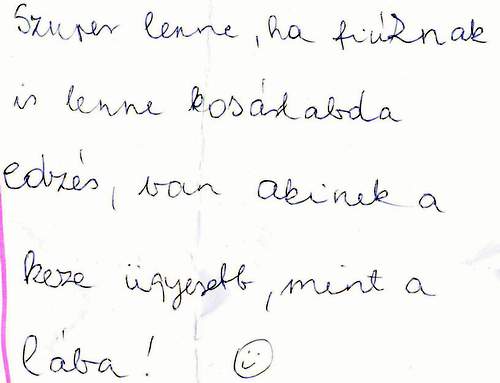 Szuper lenne, ha fiúknak
is lenne kosárlabda
edzés, van akinek a
keze ügyesebb, mint a
lába! ☺